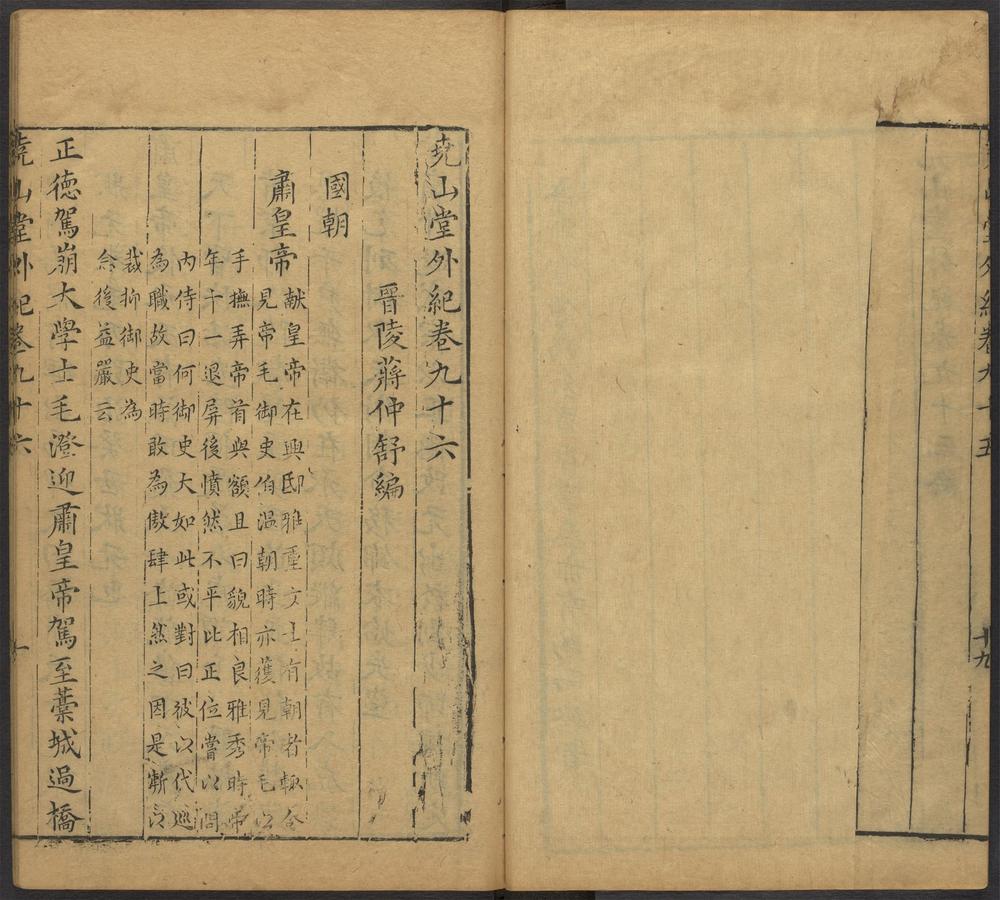 山堂外紀卷九十五
十九
堯山堂外紀卷九十六
晉陵蔣仲舒編
國朝
肅皇帝
献皇帝在興邸雅重文士有朝者輒令
見帝毛御史伯溫朝時亦獲見帝毛以
手撫弄帝首與額且曰貌相良雅秀時帝
年十一退屏後憤然不平此正位嘗以問
內侍曰何御史大如此或對曰彼以代巡
為職故當時敢為傲肆上然之因是漸以
裁抑御史為
念後益嚴云
正德駕崩大學士毛澄迎肅皇帝駕至藁城過橋
堯山堂外紀卷九十六
一